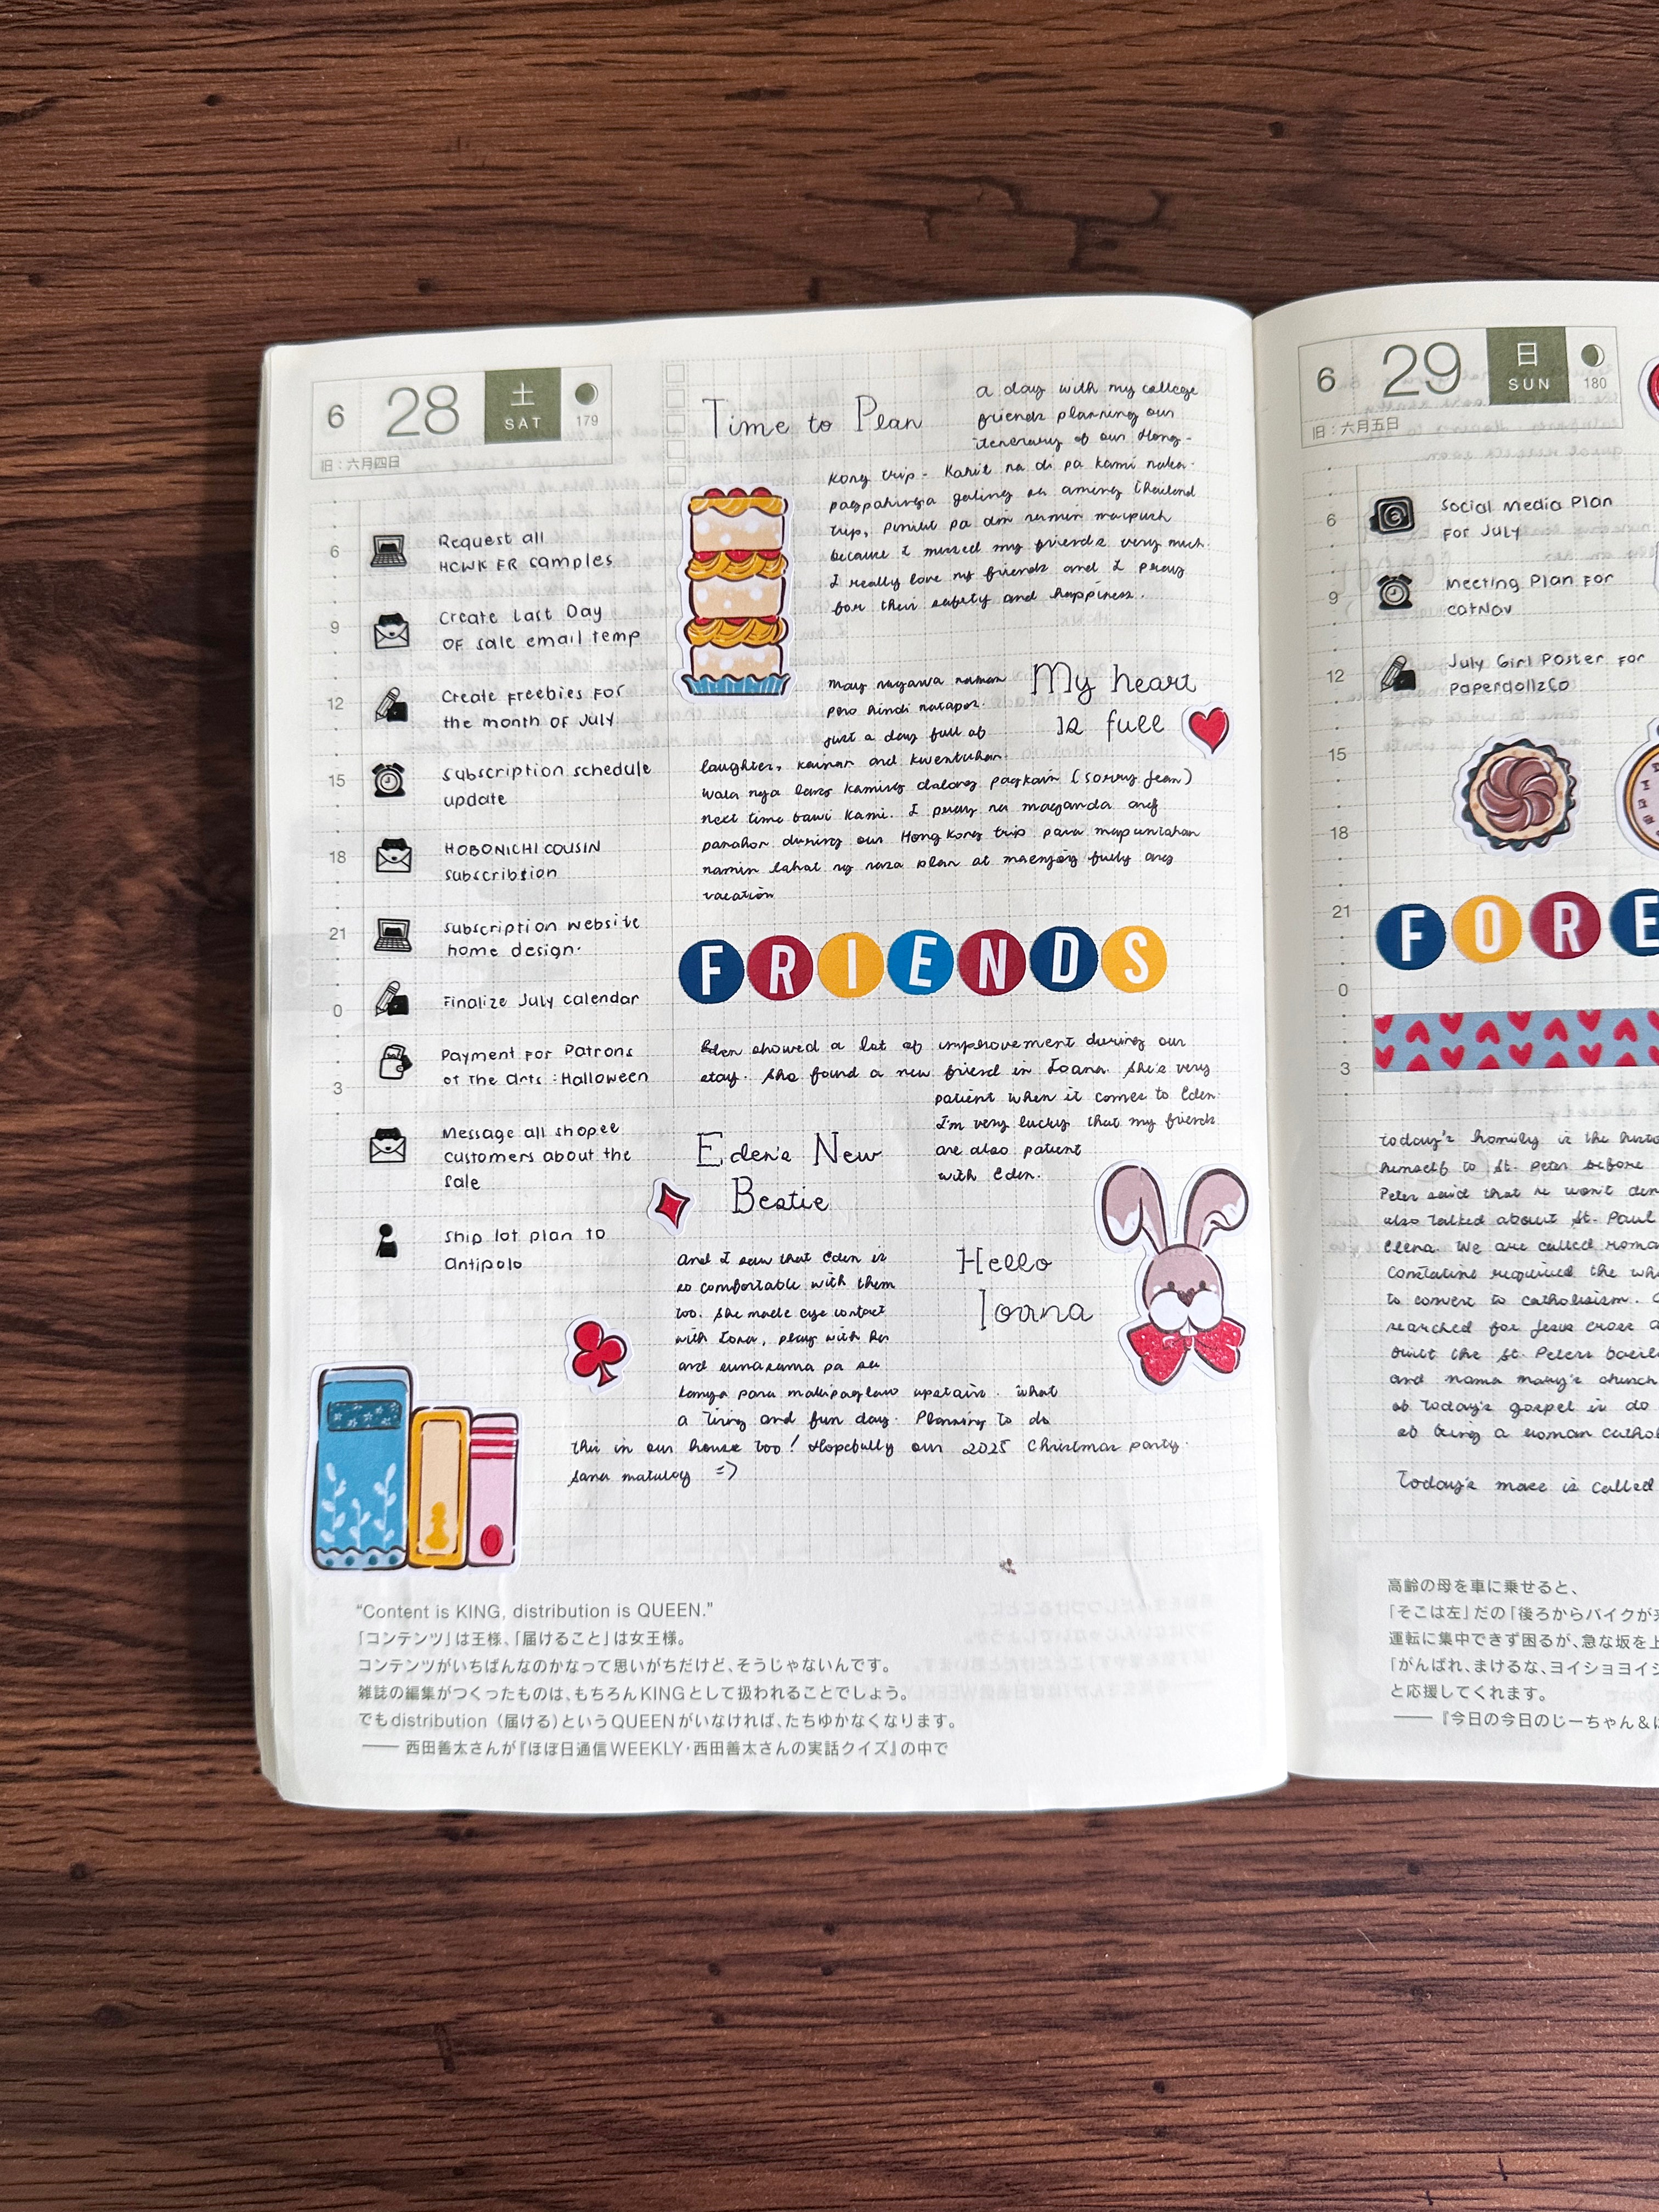 6 28 土 SAT 179
旧:六月四日
6
9
12
15
18
21
0
3
Request all
HCWK FR samples
Create Last Day
OF sale email temp
Create Freebies For
the month OF July
Subscription schedule
update
HOBONICHI COUSIN
subscribtion
Subscription website
home design.
Finalize July calendar
Payment For Patrons
of The Arts : Halloween
Message all shopee
customers about the
sale
Ship lot plan to
Antipolo
Time to Plan
a day with my college
friends planning our
itenerary of our Hong-
Kong trip - Kahit na di pa kami naka-
pagpahinga galing sa aming Thailand
trip, pinilit pa din namin
because I missed my friends very much.
I really love my friends and I pray
for their safety and happiness.
My heart
is full
may nagawa naman
pero hindi natapos.
just a day full of
laughter, kainan and kwentuhan.
wala nga lang kaming dalang pagkain (sorry Jean)
next time bawi kami. I pray na maganda ang
panahon during our Hong Kong trip para mapuntahan
namin lahat ng nasa plan at maenjoy fully ang
vacation
FRIENDS
Eden showed a lot of improvement during our
stay. She found a new friend in Ioana. She's very
patient when it comes to Eden.
I'm very lucky that my friends
are also patient
with Eden.
Eden's New
Bestie
Hello
Ioana
And I saw that Eden is
so comfortable with them
too. She made eye contact
with Ioana, play with her
and sumasama pa sa
kanya para makipaglaro upstairs. What
a tiring and fun day. Planning to do
this in our house too! Hopefully our 2025 Christmas party.
Sana matuloy =)
“Content is KING, distribution is QUEEN.”
「コンテンツ」は王様、「届けること」は女王様。
コンテンツがいちばんなのかなって思いがちだけど、そうじゃないんです。
雑誌の編集がつくったものは、もちろんKINGとして扱われることでしょう。
でもdistribution(届ける)というQUEENがいなければ、たちゆかなくなります。
── 西田善太さんが『ほぼ日通信WEEKLY・西田善太さんの実話クイズ』の中で
6 29 日 SUN 180
旧:六月五日
6
9
12
15
18
21
0
3
Social Media Plan
For July
Meeting Plan For
CatNav
July Girl Poster For
PaperdollzCo
FORE
Today's homily is the
himself to St. Peter before
Peter said that he won't
also talked about St. Paul
Elena. We are called
Constatine required the
to convert to catholisism.
searched for Jesus cross
built the St. Peters
and mama mary's church
of Today's gospel is do
of being a roman
Today's mass is called
高齢の母を車に乗せると、
「そこは左」だの「後ろからバイクが
運転に集中できず困るが、急な坂を上
「がんばれ、まけるな、ヨイショヨイシ
と応援してくれます。
── 『今日の今日のじーちゃん&